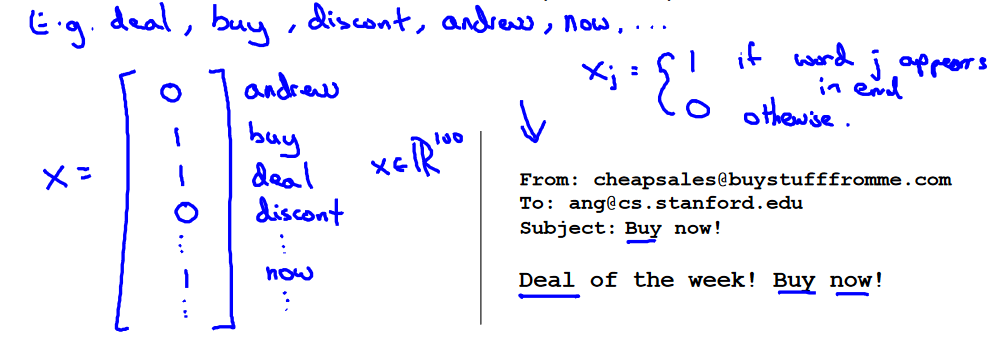 E.g. deal, buy, discont, andrew, now, ...
x = [ 0 andrew
1 buy
1 deal
0 discont
⋮ ⋮
1 now
⋮ ⋮ ]
x ∈ ℝ¹⁰⁰
xⱼ = { 1 if word j appears
in email
0 otherwise.
From: cheapsales@buystufffromme.com
To: ang@cs.stanford.edu
Subject: Buy now!
Deal of the week! Buy now!